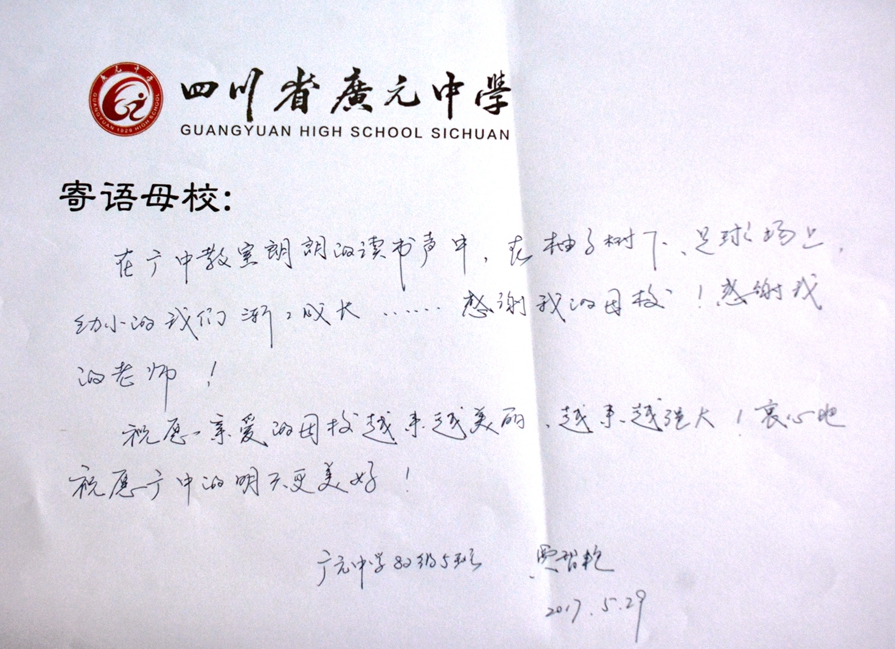 四川省廣元中學
GUANGYUAN HIGH SCHOOL SICHUAN
寄语母校:
在广中教室朗朗的读书声中，在柚子树下、足球场上，
幼小的我们渐渐成长……感谢我的母校！感谢我
的老师！
祝愿亲爱的母校越来越美丽、越来越强大！衷心地
祝愿广中的明天更美好！
广元中学80级5班
2017.5.29